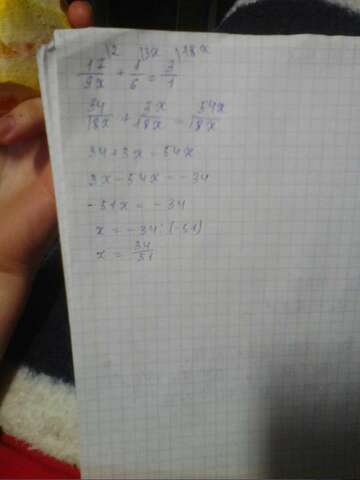 |2 |3x |18x
17/9x + 1/6 = 3/1
34/18x + 3x/18x = 54x/18x
34+3x=54x
3x-54x=-34
-51x=-34
x=-34:(-51)
x=34/51